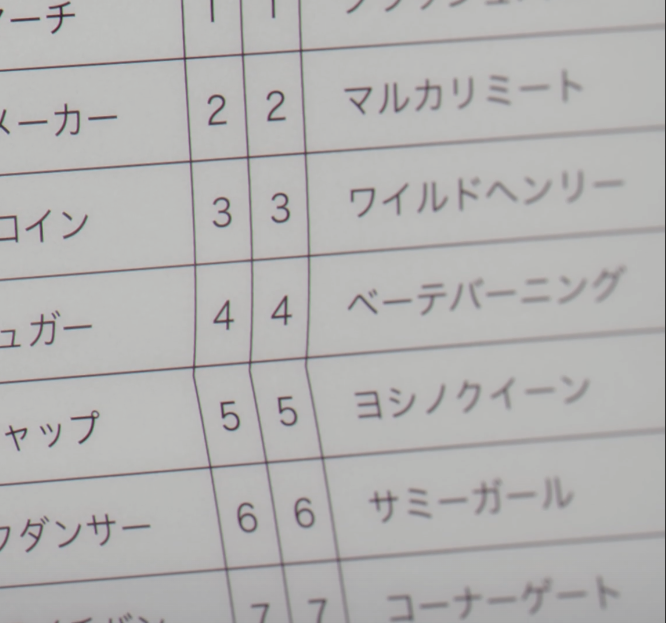 ーチ 1 1
メーカー 2 2 マルカリミート
コイン 3 3 ワイルドヘンリー
ュガー 4 4 ベーテバーニング
ャップ 5 5 ヨシノクイーン
ダンサー 6 6 サミーガール
7 7 コーナーゲート